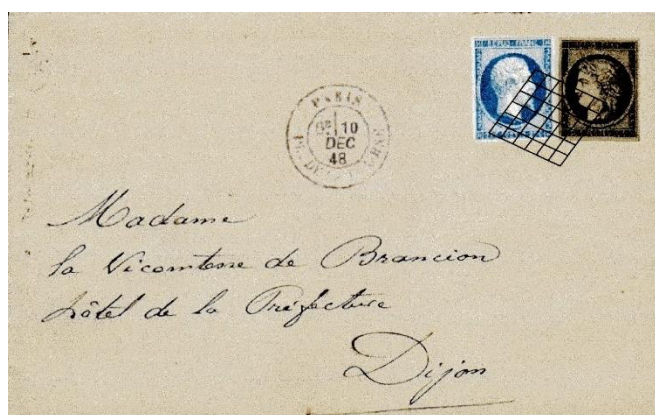 REPUB FRANC
PARIS
10
DEC
48
Madame
la Vicomtesse de Brancion
hôtel de la Préfecture
Dijon